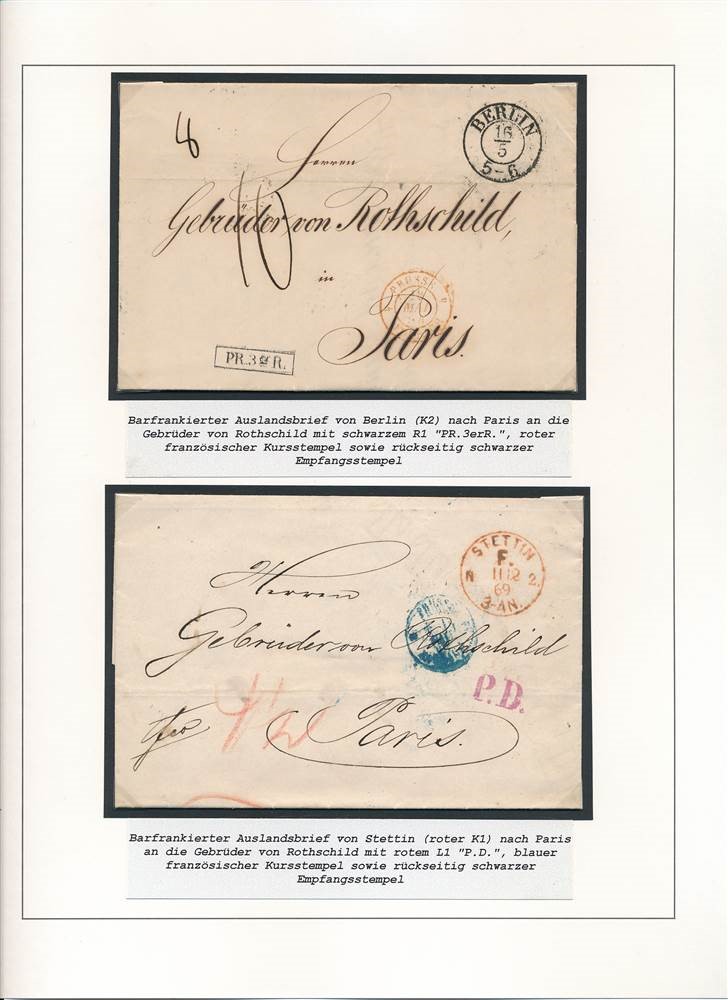 8
BERLIN
16
5
5-6
Herren
Gebrüder von Rothschild,
10
in
PRUSSE
MAI
Paris.
PR.3erR.
Barfrankierter Auslandsbrief von Berlin (K2) nach Paris an die
Gebrüder von Rothschild mit schwarzem R1 "PR.3erR.", roter
französischer Kursstempel sowie rückseitig schwarzer
Empfangsstempel
STETTIN
F.
N 11 12 2.
69
3-4N.
Herren
Gebrüder von Rothschild
P.D.
Paris.
Barfrankierter Auslandsbrief von Stettin (roter K1) nach Paris
an die Gebrüder von Rothschild mit rotem L1 "P.D.", blauer
französischer Kursstempel sowie rückseitig schwarzer
Empfangsstempel